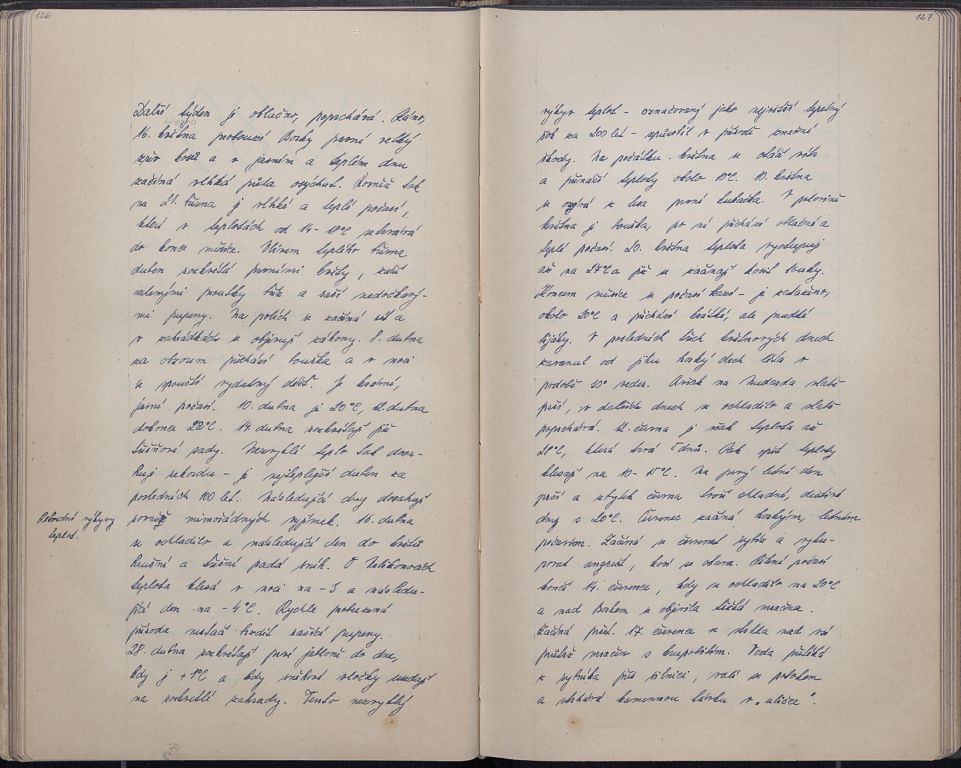 126
Další týden je oblačno, poprchává. Ráno,
16. března probouzí Borky jarní velký
zpěv kosů a v jasném a teplém dnu
začíná vlhká půda osychat. Rovněž tak
na 21. března je vlhké a teplé počasí,
které v teplotách od 14 - 18°C setrvává
do konce měsíce. Vlivem teplého března
duben rozkvétá prvními květy, raší
zelenými proutky bříz a raší nedočkavý-
mi pupeny. Na polích se začíná sít a
v zahrádkách se objevují záhony. 8. dubna
na obzoru přichází bouřka a v noci
se spouští vydatný déšť. Je krásné,
jarní počasí. 10. dubna je 20°C, 12. dubna
dokonce 22°C. 14. dubna rozkvétají již
třešňové sady. Nezvyklé teplo tak dosa-
huje rekordu - je nejteplejší duben za
posledních 100 let. Následující dny dosahují
rovněž mimořádných výjimek. 16. dubna
se ochladilo a následující den do květů
hrušní a třešní padá sníh. O Velikonocích
teplota klesá v noci na -3 a následu-
jící den na -4°C. Rychle probuzená
příroda nestačí hodit raštící pupeny.
28. dubna rozkvétají první jabloně do dne,
kdy je +1°C a kdy sněhové vločky usedají
na rozkvetlé zahrady. Tento nezvyklý
Rekordní výkyvy
teplot.
127
výkyv teplot - označovaný jako největší teplotný
rok za 200 let - způsobil v přírodě značné
škody. Na počátku května se otáčí vítr
a přináší teploty okolo 10°C. 10. května
se ozývá z lesa první kukačka. V polovině
května je bouřka, po ní přichází oblačné a
teplé počasí. 20. května teplota vystupuje
až na 28°C a již se začínají kosit louky.
Koncem měsíce se počasí kazí - je zataženo,
okolo 20°C a přichází krátké, ale prudké
lijáky. V posledních třech květnových dnech
zavanul od jihu horký dech léta v
podobě 30° veder. Avšak na Medarda slabě
prší, v dalších dnech se ochladilo a slabě
poprchává. 12. června je však teplota až
28°C, která trvá 5 dnů. Pak opět teploty
klesají na 10 - 15°C. Na prvý letní den
prší a zbytek června tvoří chladné, deštivé
dny s 20°C. Červenec začíná horkým, letním
počasím. Začíná se červenat rybíz a vybu-
povat angrešt, kosí se otava. Pěkné počasí
končí 14. července, kdy se ochladilo na 20°C
a nad Borkem se objevila těžká mračna.
Začíná pršet. 17. července se strhla nad vsí
průtrž mračen s krupobitím. Voda přitéká
k rybníka přes silnici, valí se potokem
a strhává kamennou lávku v „uličce".